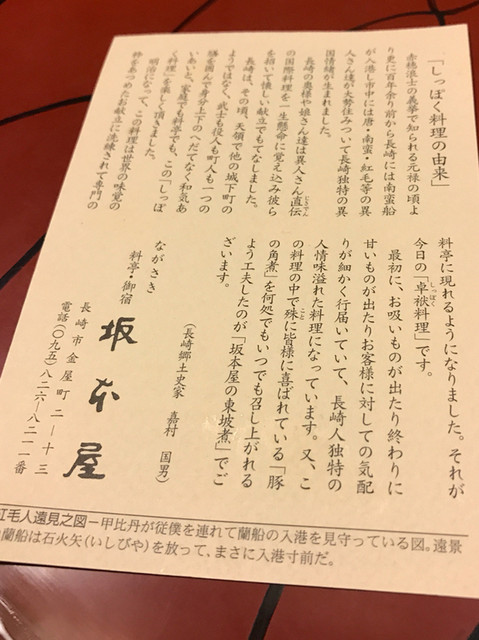 「しっぽく料理の由来」
赤穂浪士の義挙で知られる元禄の頃よ
り更に百年余り前から長崎には南蛮船
が入港し市中には唐・南蛮・紅毛等の異
人さん達が大勢住みついて長崎独特の異
国情緒が生まれました。
長崎の奥様や娘さん達は異人さん直伝
じきでん
の国際料理を一生懸命に覚え込み彼ら
を招いて懐しい献立でもてなしました。
長崎は、その頃、天領で他の城下町の
ようではなく、武士も役人も町人も一つの
膳を囲んで身分上下のへだてなく和気あ
いあいと、家庭でも料亭でも、この「しっぽ
く料理」を楽しく頂きました。
明治になって、この料理は世界の味覚の
粋をあつめたお献立に洗練されて専門の
料亭に現れるようになりました。それが
今日の「卓袱料理」です。
しっぽく
最初に、お吸いものが出たり終わりに
甘いものが出たりお客様に対しての気配
りが細かく行届いていて、長崎人独特の
人情味溢れた料理になっています。又、こ
の料理の中で殊に皆様に喜ばれている「豚
こと
の角煮」を何処でもいつでも召し上がれる
よう工夫したのが「坂本屋の東坡煮」でご
ざいます。
(長崎郷土史家 嘉村 国男)
ながさき
料亭・御宿
坂本屋
長崎市金屋町二ー十三
電話(〇九五)八二六ー八二一一番
紅毛人遠見之図ー甲比丹が従僕を連れて蘭船の入港を見守っている図。遠景
蘭船は石火矢(いしびや)を放って、まさに入港寸前だ。